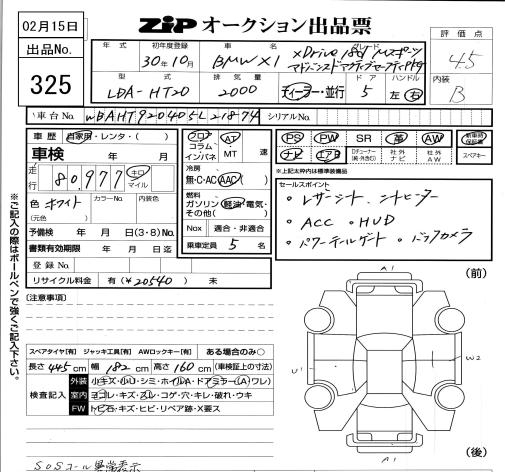 02月15日
ZIP オークション出品票
出品No.
325
評価点
4.5
内装
B
年式 初年度登録 車名 グレード
30年10月 BMW X1 xDrive 18d Mスポーツ
型式 排気量 ドア ハンドル
LDA-HT20 2000 ディーラー・並行 5 左 右
車台No. WBAHT920405L21874 シリアルNo.
車歴 自家用・レンタ・( )
車検 年 月
走行 80,977 キロ マイル
色 ホワイト カラーNo. 内装色
(元色)
予備検 年 月 日(3・8)No.
書類有効期限 年 月 日迄
登録No.
リサイクル料金 有(¥20540) 未
フロア コラム インパネ AT MT 速
冷房
無・C・AC AAC
燃料
ガソリン 軽油・電気・その他( )
Nox 適合・非適合
乗車定員 5 名
PS PW SR 革 AW 新車時保証書
ナビ エアB 社外ナビ 社外AW スペアキー
※上記太枠内は標準装備品
セールスポイント
・レザーシート シートヒーター
・ACC ・HUD
・パワーテールゲート ・バックカメラ
※ご記入の際はボールペンで強くご記入下さい。
(注意事項)
スペアタイヤ[有] ジャッキ工具[有] AWロックキー[有] ある場合のみ○
長さ 445cm 幅 182cm 高さ 160cm (車検証上の寸法)
検査記入
外装 小キズ・小U・シミ・ホイルA・ドアミラー(A)ワレ)
室内 ヨゴレ・キズ・スレ・コゲ・穴・キレ・破れ・ウキ
FW トビ石・キズ・ヒビ・リペア跡・X要ス
SOSコール異常表示
(前)
A1
U1
W2
A1
(後)